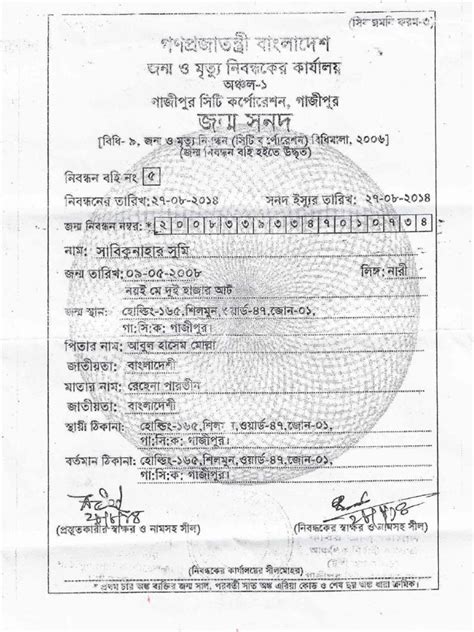 (সিব প্রমনি ফরম-৩)
গণপ্রজাতন্ত্রী বাংলাদেশ
জন্ম ও মৃত্যু নিবন্ধকের কার্যালয়
অঞ্চল-১
গাজীপুর সিটি কর্পোরেশন, গাজীপুর
জন্ম সনদ
[বিধি- ৯, জন্ম ও মৃত্যু নিবন্ধন (সিটি কর্পোরেশন) বিধিমালা, ২০০৬]
(জন্ম নিবন্ধন বহি হইতে উদ্ধৃত)
নিবন্ধন বহি নং ৫
নিবন্ধনের তারিখ:২৭-০৮-২০১৪ সনদ ইস্যুর তারিখ: ২৭-০৮-২০১৪
জন্ম নিবন্ধন নম্বর: * ২ ০ ০ ৮ ৩ ৩ ৯ ৩ ৪ ৭ ০ ১ ০ ৭ ৩ ৪
নাম: সাবিকুনাহার সুমি
জন্ম তারিখ:০৯-০৫-২০০৮ লিঙ্গ: নারী
নয়ই মে দুই হাজার আট
জন্ম স্থান: হোল্ডিং-১৬৫,শিলমুন,ওয়ার্ড-৪৭,জোন-০১,
গা:সি:ক: গাজীপুর।
পিতার নাম: আবুল হাসেম মোল্লা
জাতীয়তা: বাংলাদেশী
মাতার নাম: রেহেনা পারভীন
জাতীয়তা: বাংলাদেশী
স্থায়ী ঠিকানা: হোল্ডিং-১৬৫,শিলমুন,ওয়ার্ড-৪৭,জোন-০১,
গা:সি:ক; গাজীপুর।
বর্তমান ঠিকানা: হোল্ডিং-১৬৫,শিলমুন,ওয়ার্ড-৪৭,জোন-০১,
গা:সি:ক; গাজীপুর।
(প্রস্তুতকারীর স্বাক্ষর ও নামসহ সীল) (নিবন্ধকের স্বাক্ষর ও নামসহ সীল)
(নিবন্ধকের কার্যালয়ের সীলমোহর)
* প্রথম চার অঙ্ক ব্যক্তির জন্ম সাল, পরবর্তী সাত অঙ্ক এরিয়া কোড ও শেষ ছয় অঙ্ক ধারা ক্রমিক।